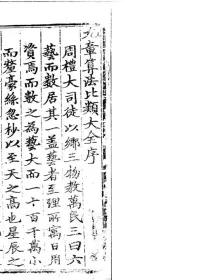 九章算法比類大全序
周禮大司徒以鄉三物教萬民三曰六
藝而數居其一蓋藝者至理所寓日用
資焉而數之為藝大而一十百千萬小
而釐毫絲忽杪以至天之高也星辰之